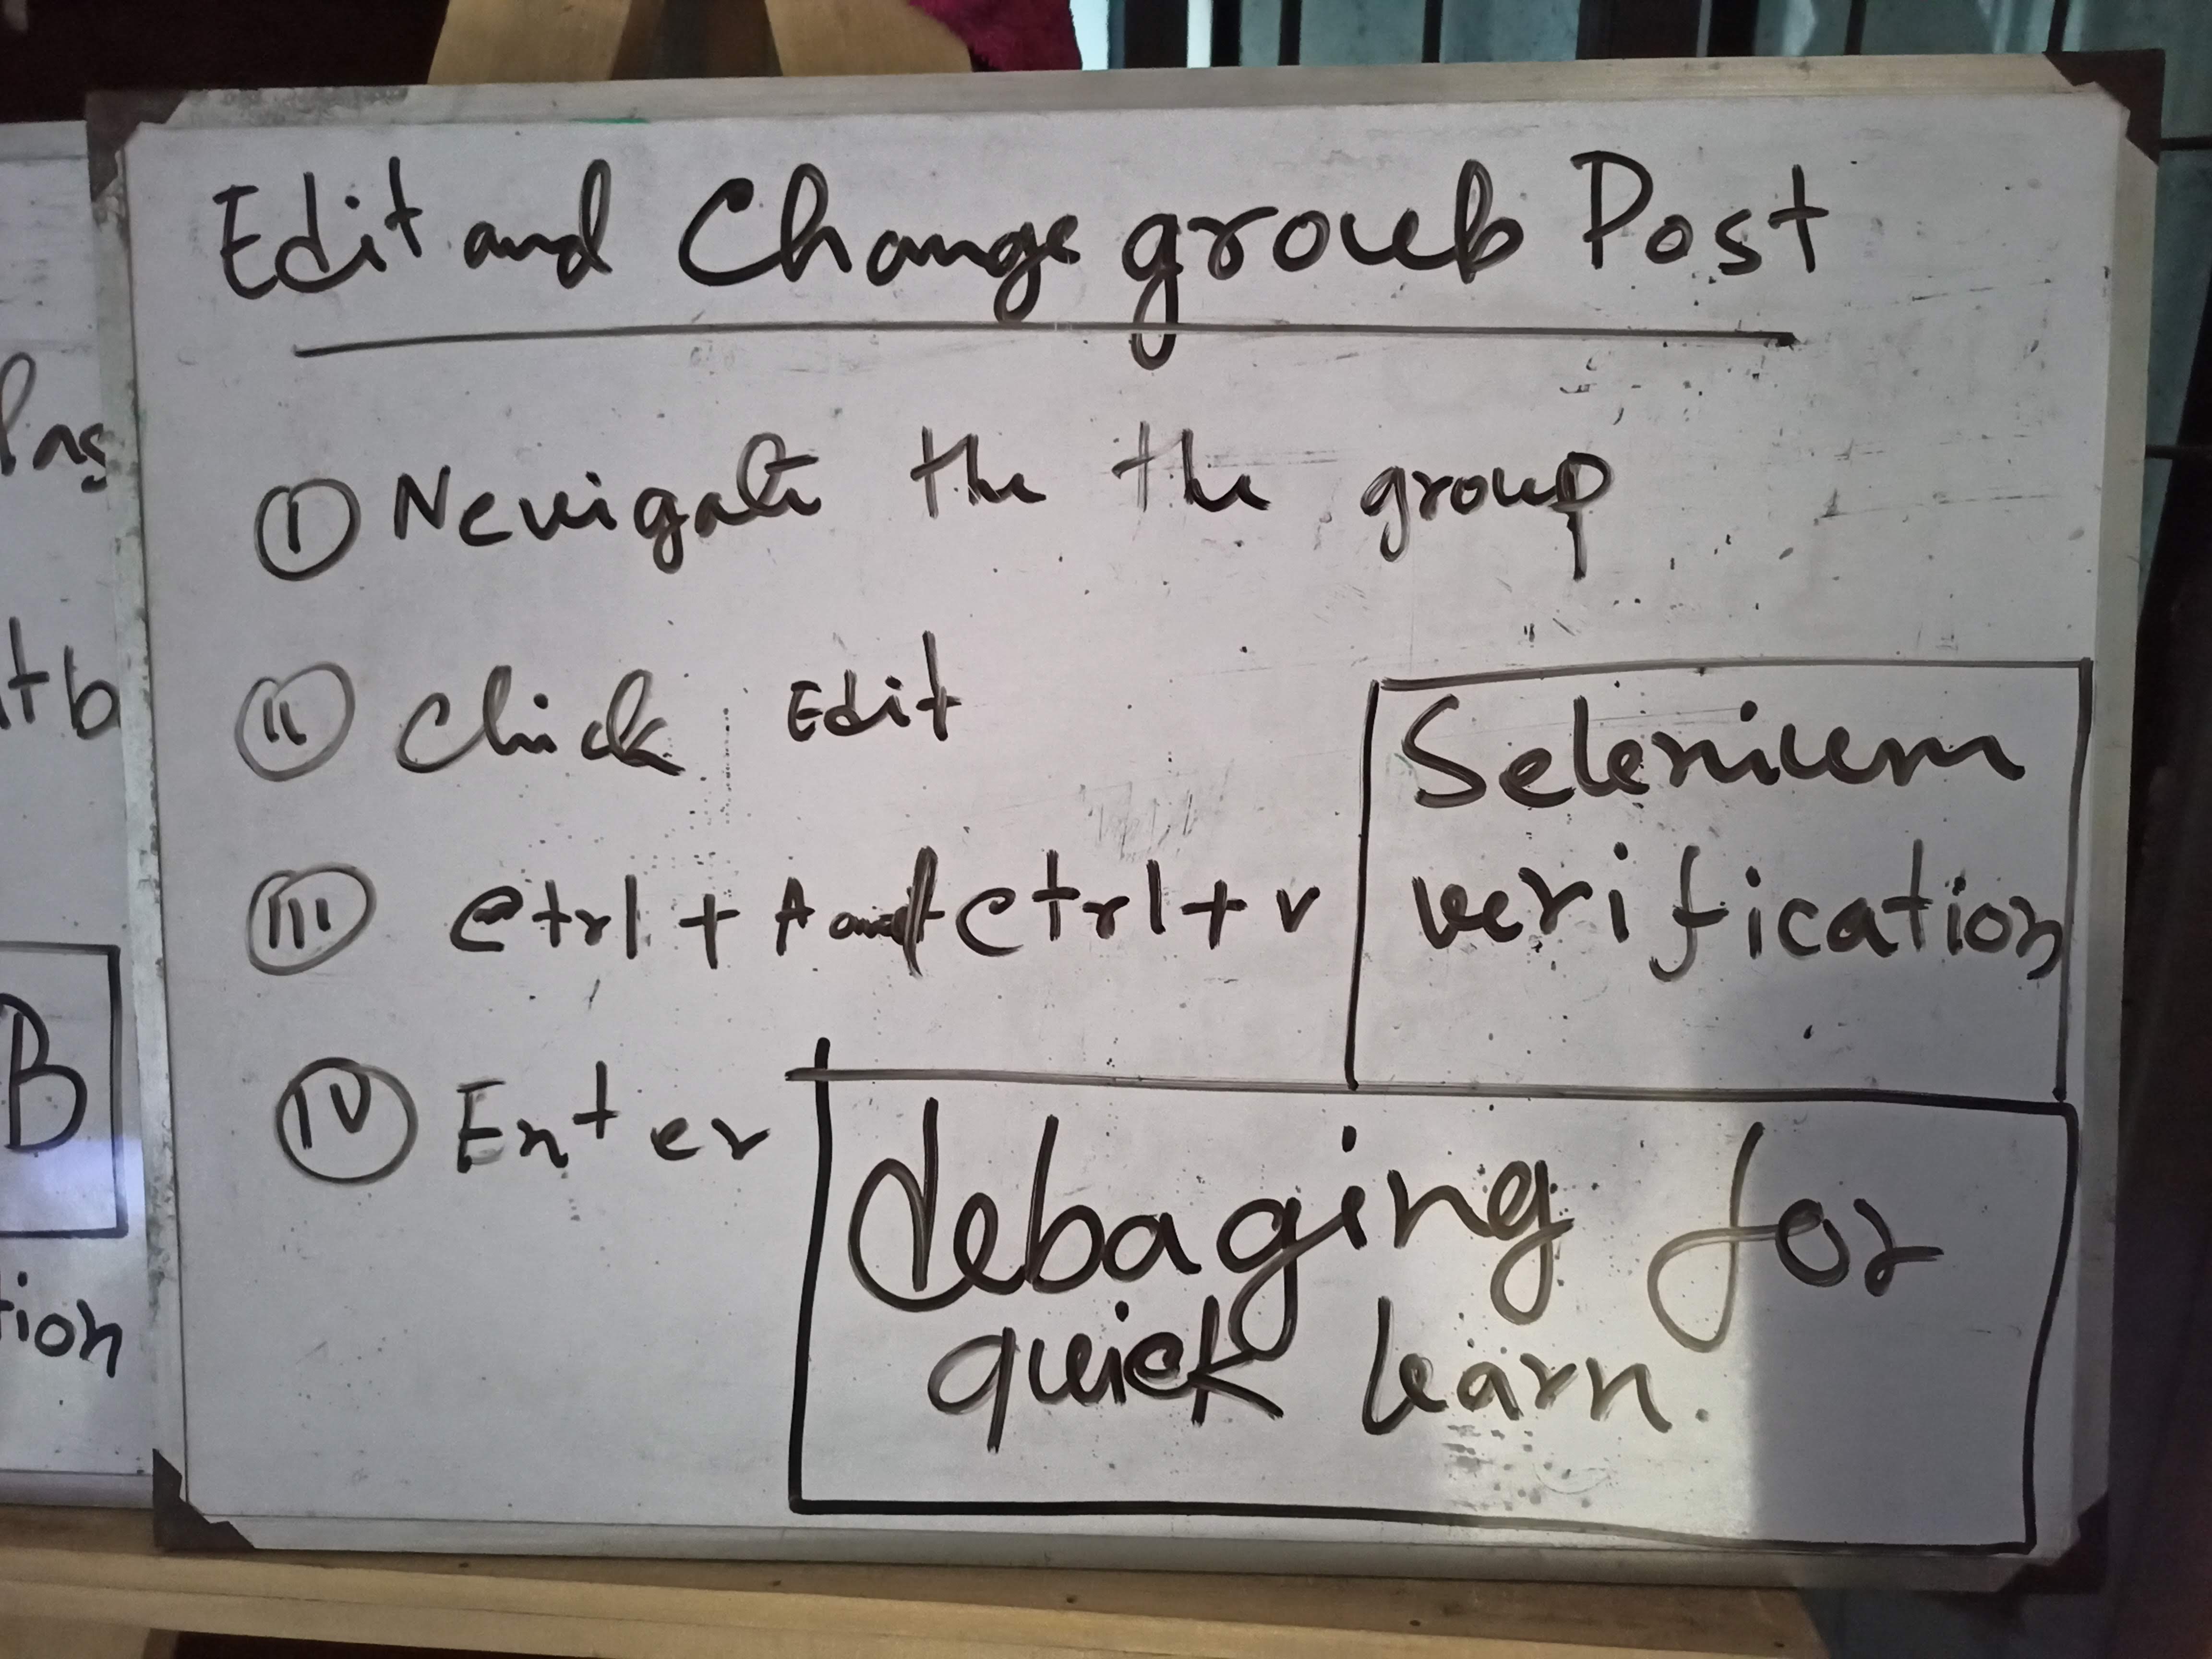 Edit and Change groub Post
① Nevigate the the group
② Chick Edit
③ Ctrl + A and Ctrl + v
④ Enter
Selenium
verification
debaging for
quick learn.
ас
tb
B
tion